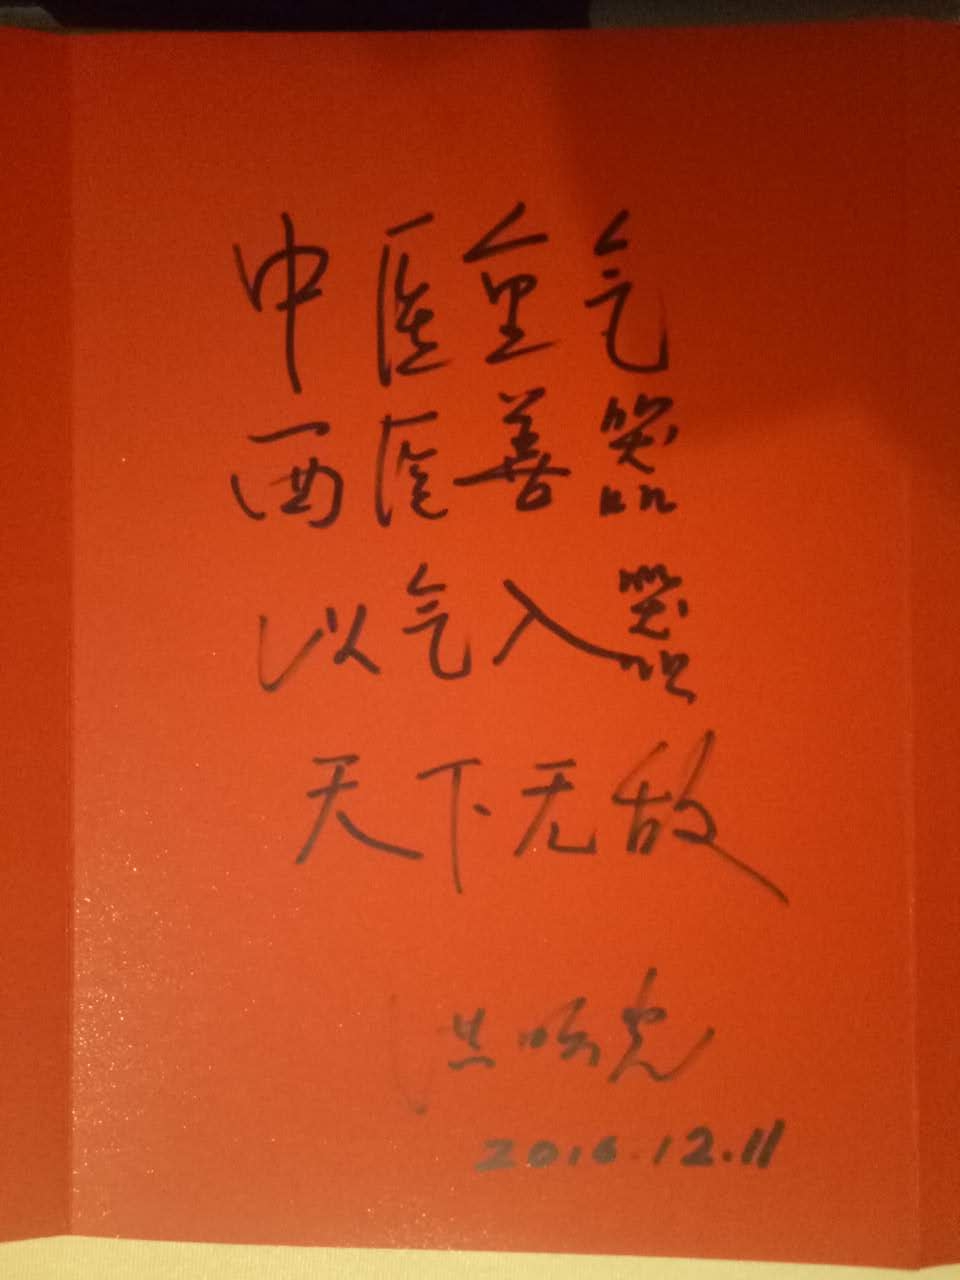 中医重气
西医善器
以气入器
天下无敌
洪昭光
2016.12.11